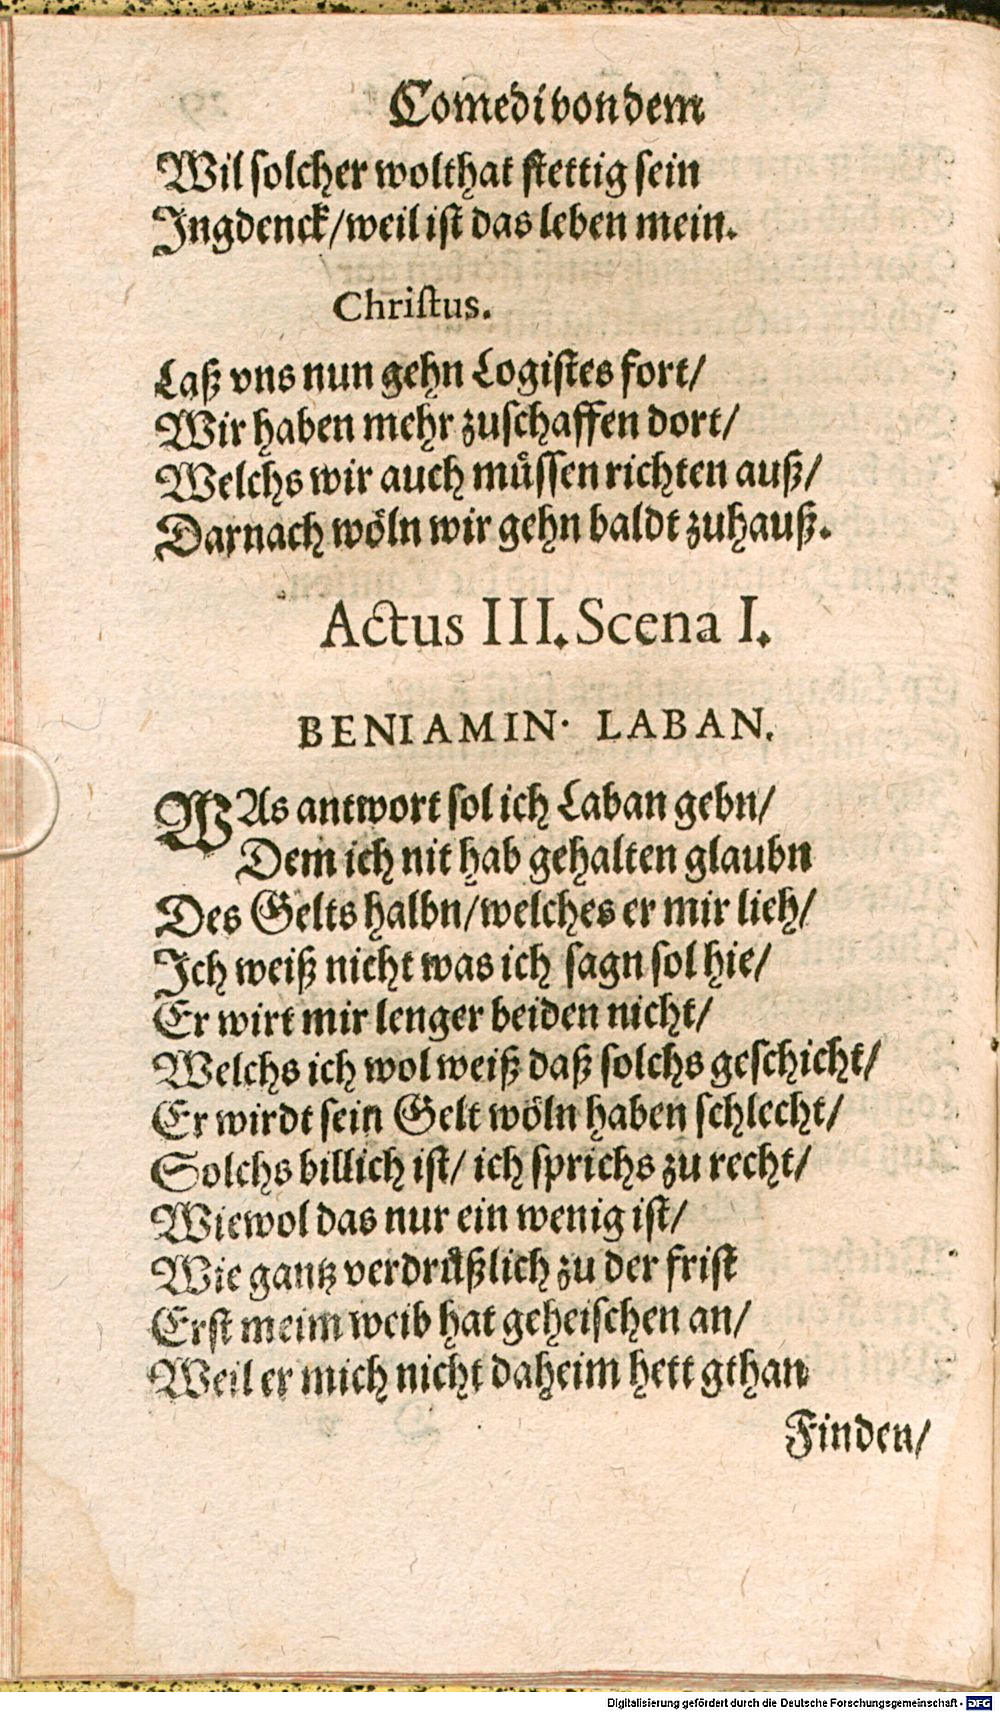 Comedi von dem
Wil solcher wolthat stettig sein
Ingdenck/ weil ist das leben mein.
Christus.
Laß vns nun gehn Logistes fort/
Wir haben mehr zuschaffen dort/
Welchs wir auch müssen richten auß/
Darnach wöln wir gehn baldt zuhauß.
Actus III. Scena I.
BENIAMIN. LABAN.
WAs antwort sol ich Laban gebn/
Dem ich nit hab gehalten glaubn
Des Gelts halbn/ welches er mir lieh/
Ich weiß nicht was ich sagn sol hie/
Er wirt mir lenger beiden nicht/
Welchs ich wol weiß daß solchs geschicht/
Er wirdt sein Gelt wöln haben schlecht/
Solchs billich ist/ ich sprichs zu recht/
Wiewol das nur ein wenig ist/
Wie gantz verdrüßlich zu der frist
Erst meim weib hat geheischen an/
Weil er mich nicht daheim hett gthan
Finden/
Digitalisierung gefördert durch die Deutsche Forschungsgemeinschaft - DFG